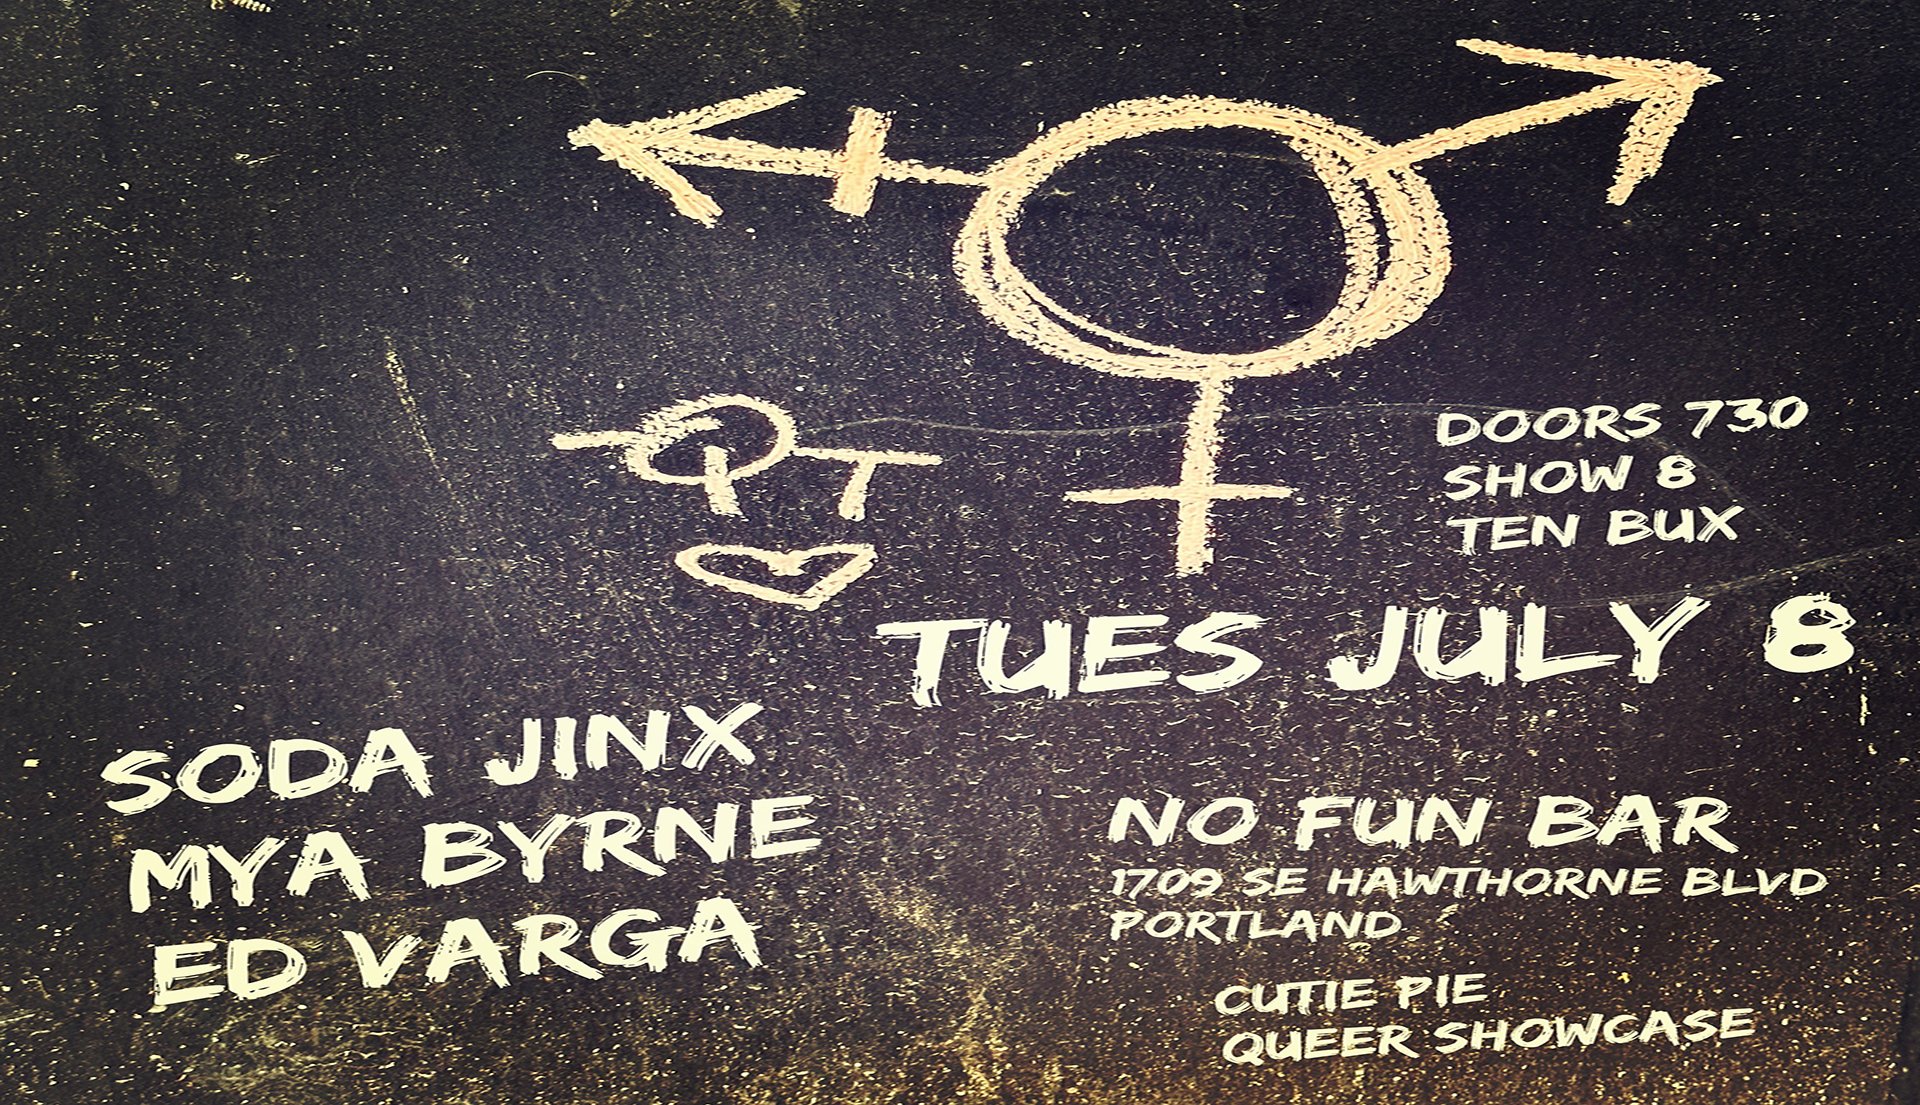 DOORS 730
SHOW 8
TEN BUX
TUES JULY 8
SODA JINX
MYA BYRNE
ED VARGA
NO FUN BAR
1709 SE HAWTHORNE BLVD
PORTLAND
CUTIE PIE
QUEER SHOWCASE